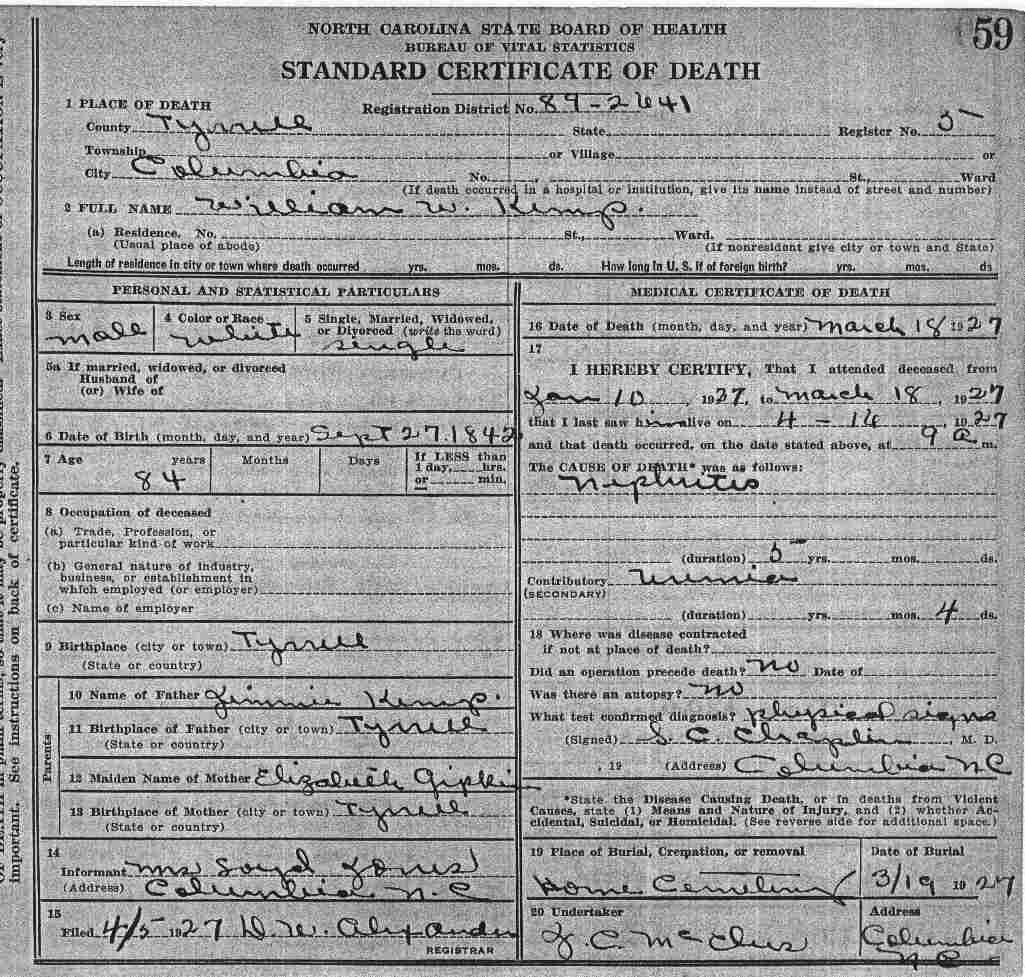 59
NORTH CAROLINA STATE BOARD OF HEALTH
BUREAU OF VITAL STATISTICS
STANDARD CERTIFICATE OF DEATH
1 PLACE OF DEATH Registration District No. 89-2641
County Tyrrell State Register No. 5
Township or Village or
City Columbia No. St., Ward
(If death occurred in a hospital or institution, give its name instead of street and number)
2 FULL NAME William W. Kemp.
(a) Residence. No. St., Ward.
(Usual place of abode) (If nonresident give city or town and State)
Length of residence in city or town where death occurred yrs. mos. ds. How long in U. S. if of foreign birth? yrs. mos. ds
PERSONAL AND STATISTICAL PARTICULARS
3 Sex 4 Color or Race 5 Single, Married, Widowed,
or Divorced (write the word)
male white single
5a If married, widowed, or divorced
Husband of
(or) Wife of
6 Date of Birth (month, day, and year) Sept 27. 1842
7 Age years Months Days If LESS than
1 day, hrs.
84 or min.
8 Occupation of deceased
(a) Trade, Profession, or
particular kind of work
(b) General nature of industry,
business, or establishment in
which employed (or employer)
(c) Name of employer
9 Birthplace (city or town) Tyrrell
(State or country)
Parents
10 Name of Father Jimmie Kemp.
11 Birthplace of Father (city or town) Tyrrell
(State or country)
12 Maiden Name of Mother Elizabeth
13 Birthplace of Mother (city or town) Tyrrell
(State or country)
14
Informant Mrs Jones
(Address) Columbia N. C
15
Filed 4/5 1927 D. W. Alexander
REGISTRAR
MEDICAL CERTIFICATE OF DEATH
16 Date of Death (month, day, and year) March 18 1927
17
I HEREBY CERTIFY, That I attended deceased from
Jan 10, 1927, to March 18, 1927
that I last saw him alive on 4 - 14, 1927
and that death occurred, on the date stated above, at 9 a m.
The CAUSE OF DEATH* was as follows:
Nephritis
(duration) 5 yrs. mos. ds.
Contributory Uremia
(SECONDARY)
(duration) yrs. mos. 4 ds.
18 Where was disease contracted
if not at place of death?
Did an operation precede death? No Date of
Was there an autopsy? No
What test confirmed diagnosis? physical signs
(Signed) S. C. Chaplin, M. D.
, 19 (Address) Columbia N C
*State the Disease Causing Death, or in deaths from Violent
Causes, state (1) Means and Nature of Injury, and (2) whether Ac-
cidental, Suicidal, or Homicidal. (See reverse side for additional space.)
19 Place of Burial, Cremation, or removal Date of Burial
Home Cemetery 3/19 1927
20 Undertaker Address
C. Columbia
N C
important. See instructions on back of certificate.